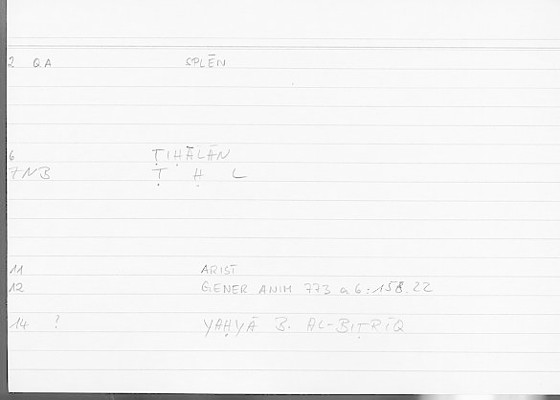 2 QA SPLĒN
6 ṬIḤĀLĀN
7NB Ṭ Ḥ L
11 ARIST
12 GENER ANIM 773 a 6 : 158.22
14 ? YAḤYĀ B. AL-BIṬRĪQ